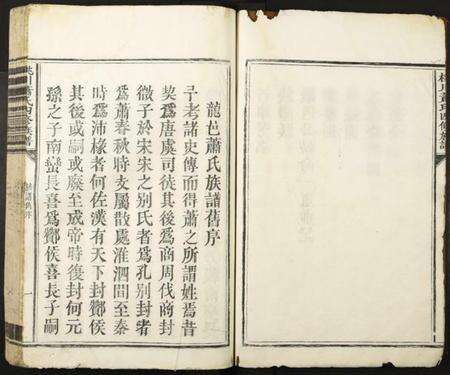 龍邑蕭氏族譜舊序
予考諸史傳而得蕭之所謂姓焉昔
契爲唐虞司徒其後爲商周伐商封
微子於宋宋之别氏者爲孔别封者
爲蕭春秋時支屬散處淮泗間至秦
時爲沛椽者何佐漢有天下封酇侯
其後或嗣或廢至成帝時復封何元
孫之子南䜌長喜爲酇侯喜長子嗣
一